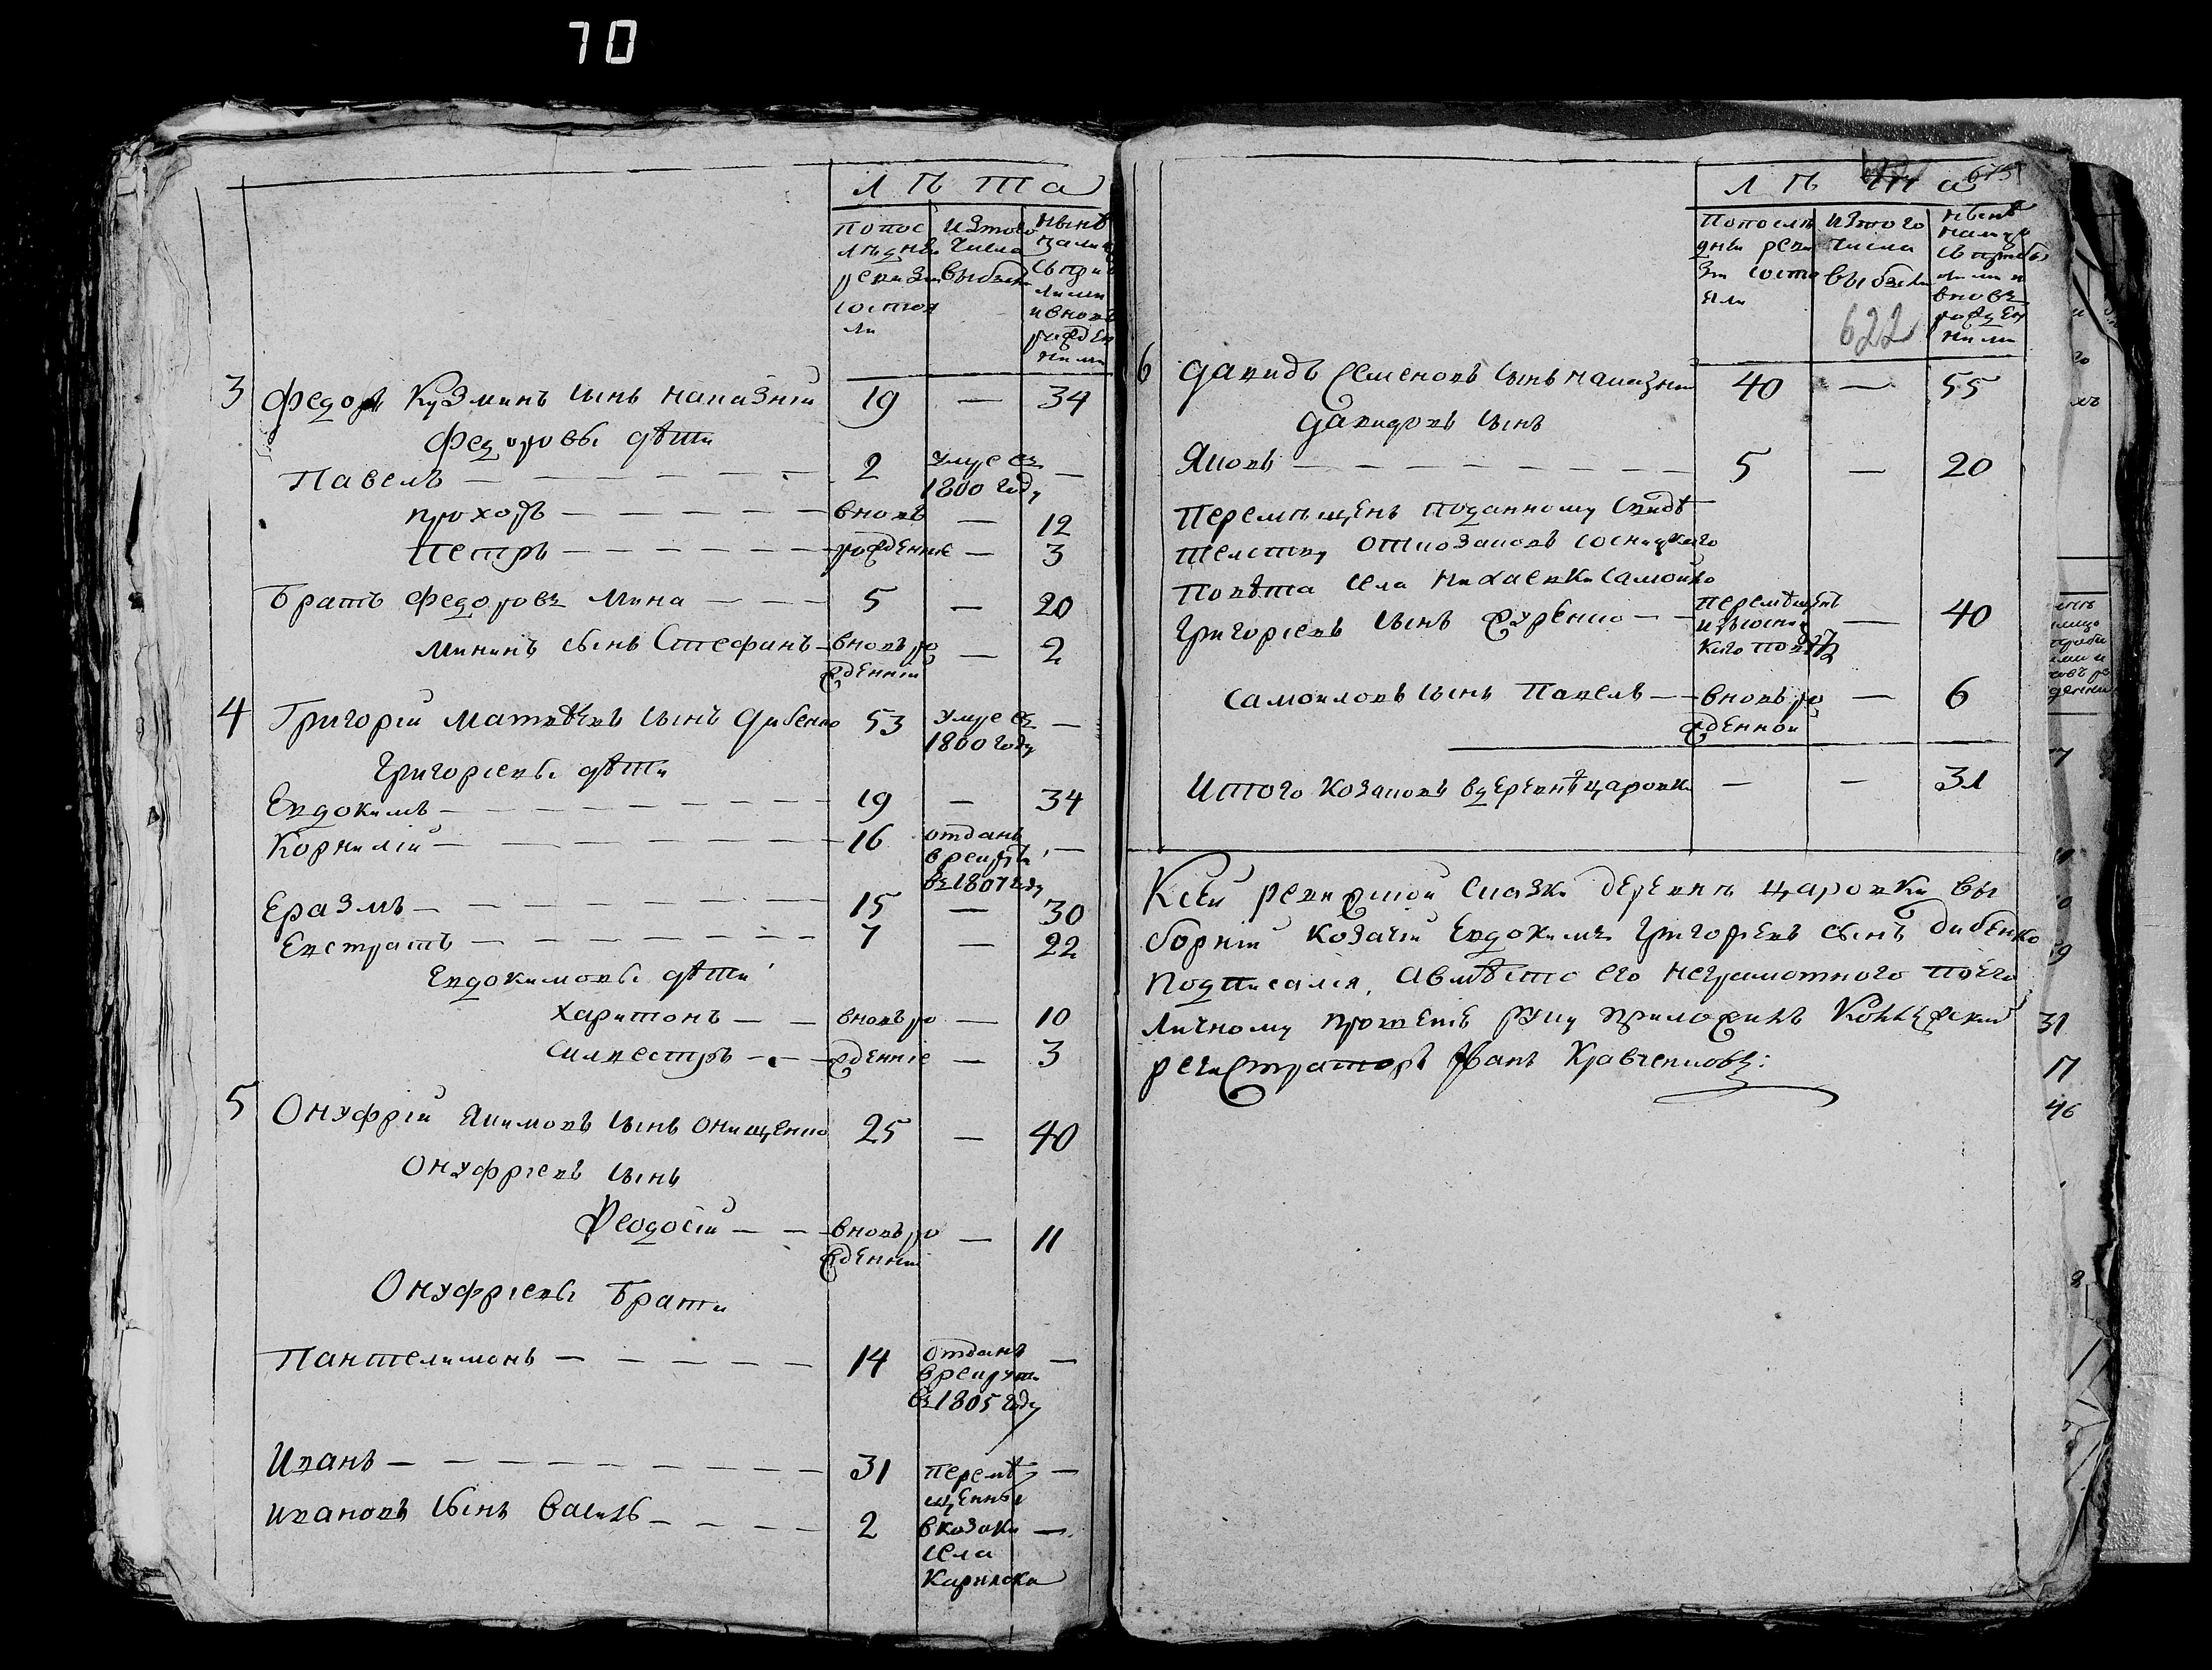 70
Лѣта
попос
лѣдней
ревизіи
состоя
ли
изтого
числа
выбыло
нынѣ
налицо
съприб
лими
ивновь
рожден
ними
3 Федоръ Кузминъ сынъ 19 — 34
Федоровы дѣти
Павелъ — 2 умре въ
1800 году —
Прохоръ — вновь — 12
Петръ — рожденніе — 3
Братъ Федоровъ Мина — 5 — 20
Мининъ сынъ Стефанъ — вновь ро
жденній — 2
4 Григорій Матвѣевъ сынъ Дибенко 53 умре въ
1800 году —
Григориевы дѣти
Евдокимъ — 19 — 34
Корнилій — 16 отданъ
врекруты
въ1807году —
Еразмъ — 15 — 30
Евстратъ — 7 — 22
Евдокимовы дѣти
Харитонъ — вновь ро — 10
Силвестръ — жденніе — 3
5 Онуфрій Якимовъ сынъ Онищенко 25 — 40
Онуфріевъ сынъ
Феодосій — вновь ро
жденній — 11
Онуфріевы Брати
Пантелимонъ — 14 отданъ
врекруты
въ1805 году —
Иванъ — 31 перемѣ —
щенны
Ивановъ сынъ Василь — 2 вкозаки —
села
Лѣта
Попослѣ
дней реви
зіи состо
яли
изтого
числа
выбыли
622
нынѣ
налицо
съприбы
лими и
вновь
рожден
ними
6 Давидъ Семеновъ сынъ 40 — 55
Давидовъ сынъ
Яковъ — 5 — 20
Перемѣщенъ поданному свидѣ
телству откозаковъ сосницкого
Повѣта села Самойло
Григориевъ сынъ — перемѣщенъ
изъсосниц
кого повѣта — 40
Самойловъ сынъ Павелъ — вновь ро
жденной — 6
Итого козаковъ вдеревнѣ Царовки — — 31
Ксей ревизской сказки деревнѣ Царовки вы
борній козачій Евдокимъ Григориевъ сынъ Дибенко
подписался, авмѣсто его неграмотного поего
личному прошенію руку приложилъ Колежский
регистраторъ Иванъ
31
17
46